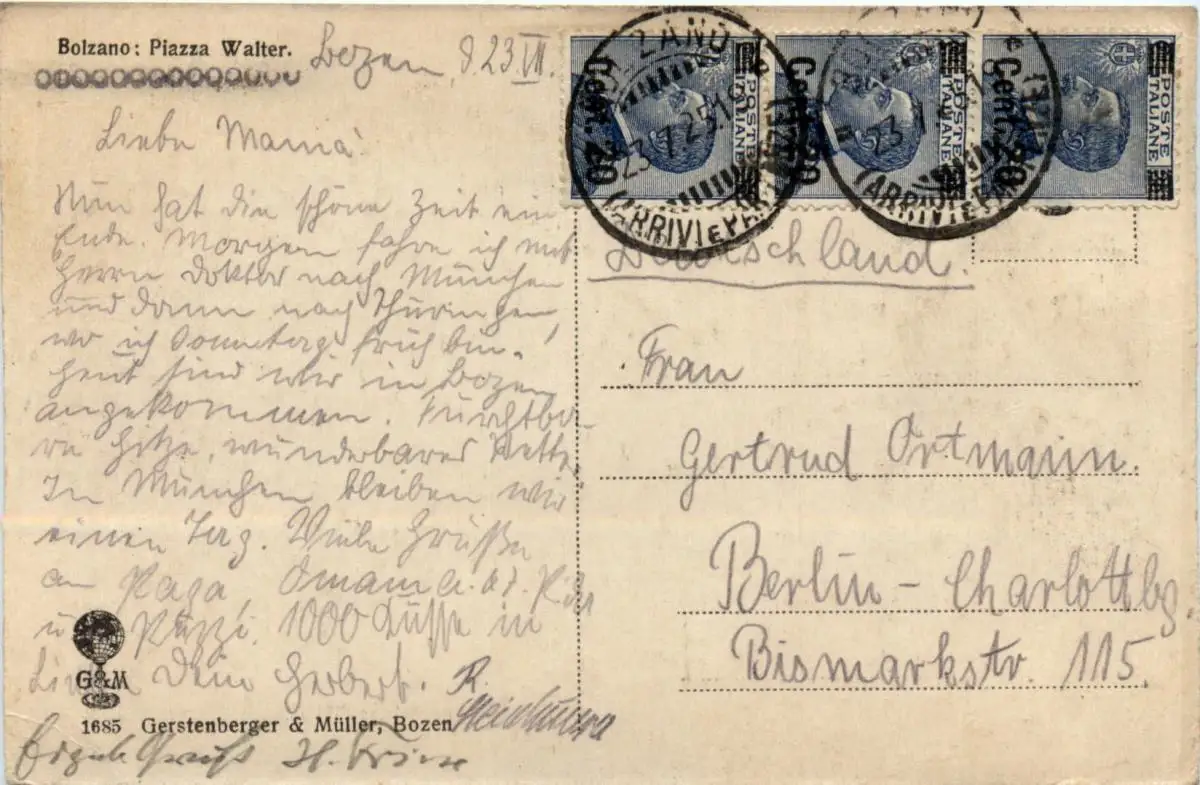 Bolzano: Piazza Walter.
Bozen, d. 23.VII.
Liebe Mama!
Nun hat die schöne Zeit ein
Ende. Morgen fahre ich mit
Herrn Doktor nach München
und dann nach Thüringen,
wo ich Sonntag früh bin.
Heut sind wir in Bozen
angekommen. Furchtba-
re Hitze, wunderbares Wetter.
In München bleiben wir
einen Tag. Viele Grüße
an Papa, Omama
u. 1000 Küsse in
Liebe Dein Herbert.
G&M
1685 Gerstenberger & Müller, Bozen
Ergeb. Gruß H.
Cent. 20
POSTE ITALIANE
Cent. 20
POSTE ITALIANE
Cent. 20
POSTE ITALIANE
BOLZANO
23.7.25.19
ARRIVI E PARTENZE
ARRIVI E PARTENZE
Deutschland.
Frau
Gertrud Ortmann.
Berlin-Charlottbg
Bismarkstr. 115.